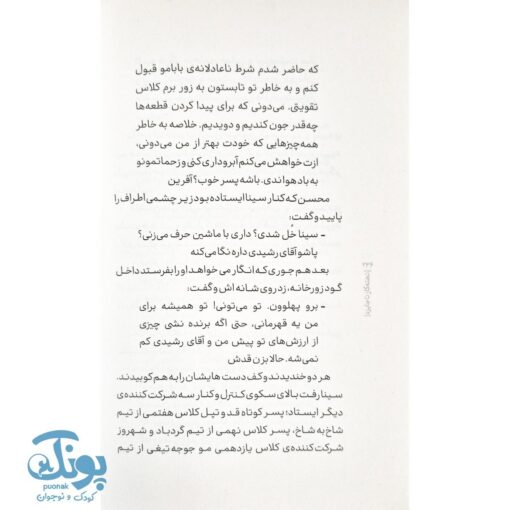 که حاضر شدم شرط ناعادلانه‌ی بابامو قبول
کنم و به خاطر تو تابستون به زور برم کلاس
تقویتی. می‌دونی که برای پیدا کردن قطعه‌ها
چه‌قدر جون کندیم و دویدیم. خلاصه به خاطر
همه‌چیزهایی که خودت بهتر از من می‌دونی،
ازت خواهش می‌کنم آبروداری کنی و زحماتمونو
به باد هواندی. باشه پسر خوب؟ آفرین
محسن که کنار سینا ایستاده بود زیرچشمی اطراف را
پایید و گفت:
- سینا خُل شدی؟ داری با ماشین حرف می‌زنی؟
پاشو آقای رشیدی داره نگا می‌کنه
بعد هم جوری که انگار می‌خواهد او را بفرستد داخل
گود زورخانه، زد روی شانه‌اش و گفت:
- برو پهلوون. تو می‌تونی! تو همیشه برای
من یه قهرمانی، حتی اگه برنده نشی چیزی
از ارزش‌های تو پیش من و آقای رشیدی کم
نمی‌شه. حالا بزن قدش
هر دو خندیدند و کف دست‌هایشان را به هم کوبیدند.
سینا رفت بالای سکوی کنترل و کنار سه شرکت‌کننده‌ی
دیگر ایستاد؛ پسر کوتاه قد و تپل کلاس هفتمی از تیم
شاخ به شاخ، پسر کلاس نهمی از تیم گردباد و شهروز
شرکت‌کننده‌ی کلاس یازدهمی مو جوجه تیغی از تیم
پونک
puonak
کودک و نوجوان